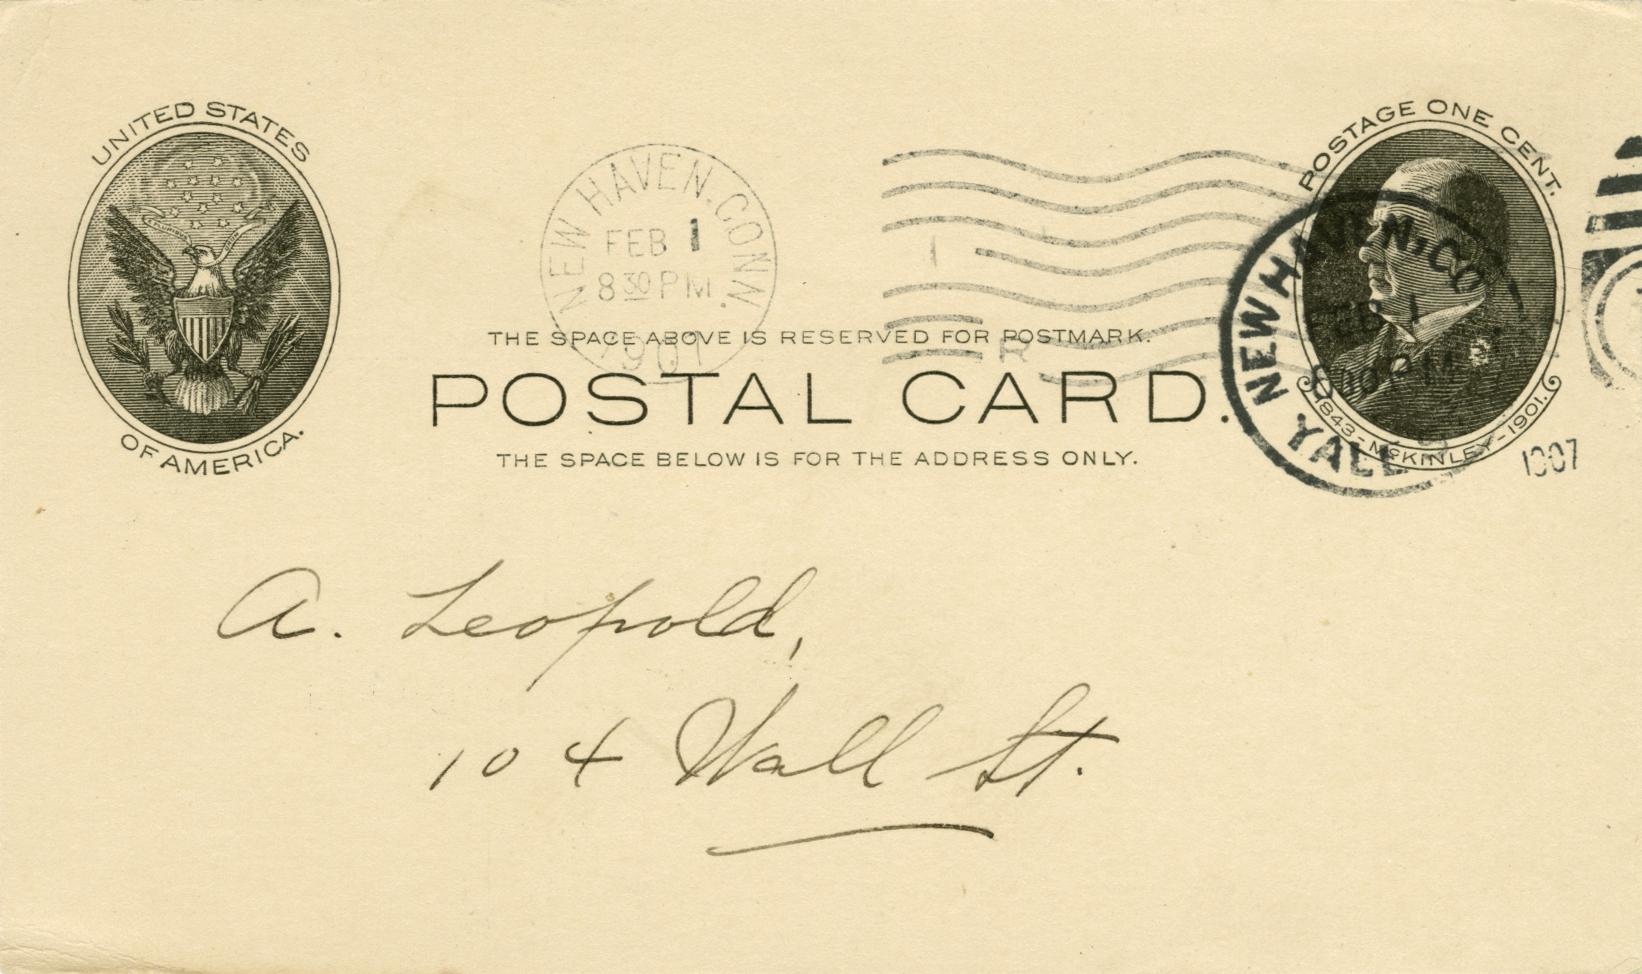 UNITED STATES
OF AMERICA.
NEW HAVEN. CONN.
FEB 1
8 30 PM
1907
THE SPACE ABOVE IS RESERVED FOR POSTMARK.
POSTAL CARD.
THE SPACE BELOW IS FOR THE ADDRESS ONLY.
POSTAGE ONE CENT.
1843-McKINLEY-1901.
NEW HAVEN, CO
FEB 1
YALE
1907
A. Leopold,
104 Wall St.